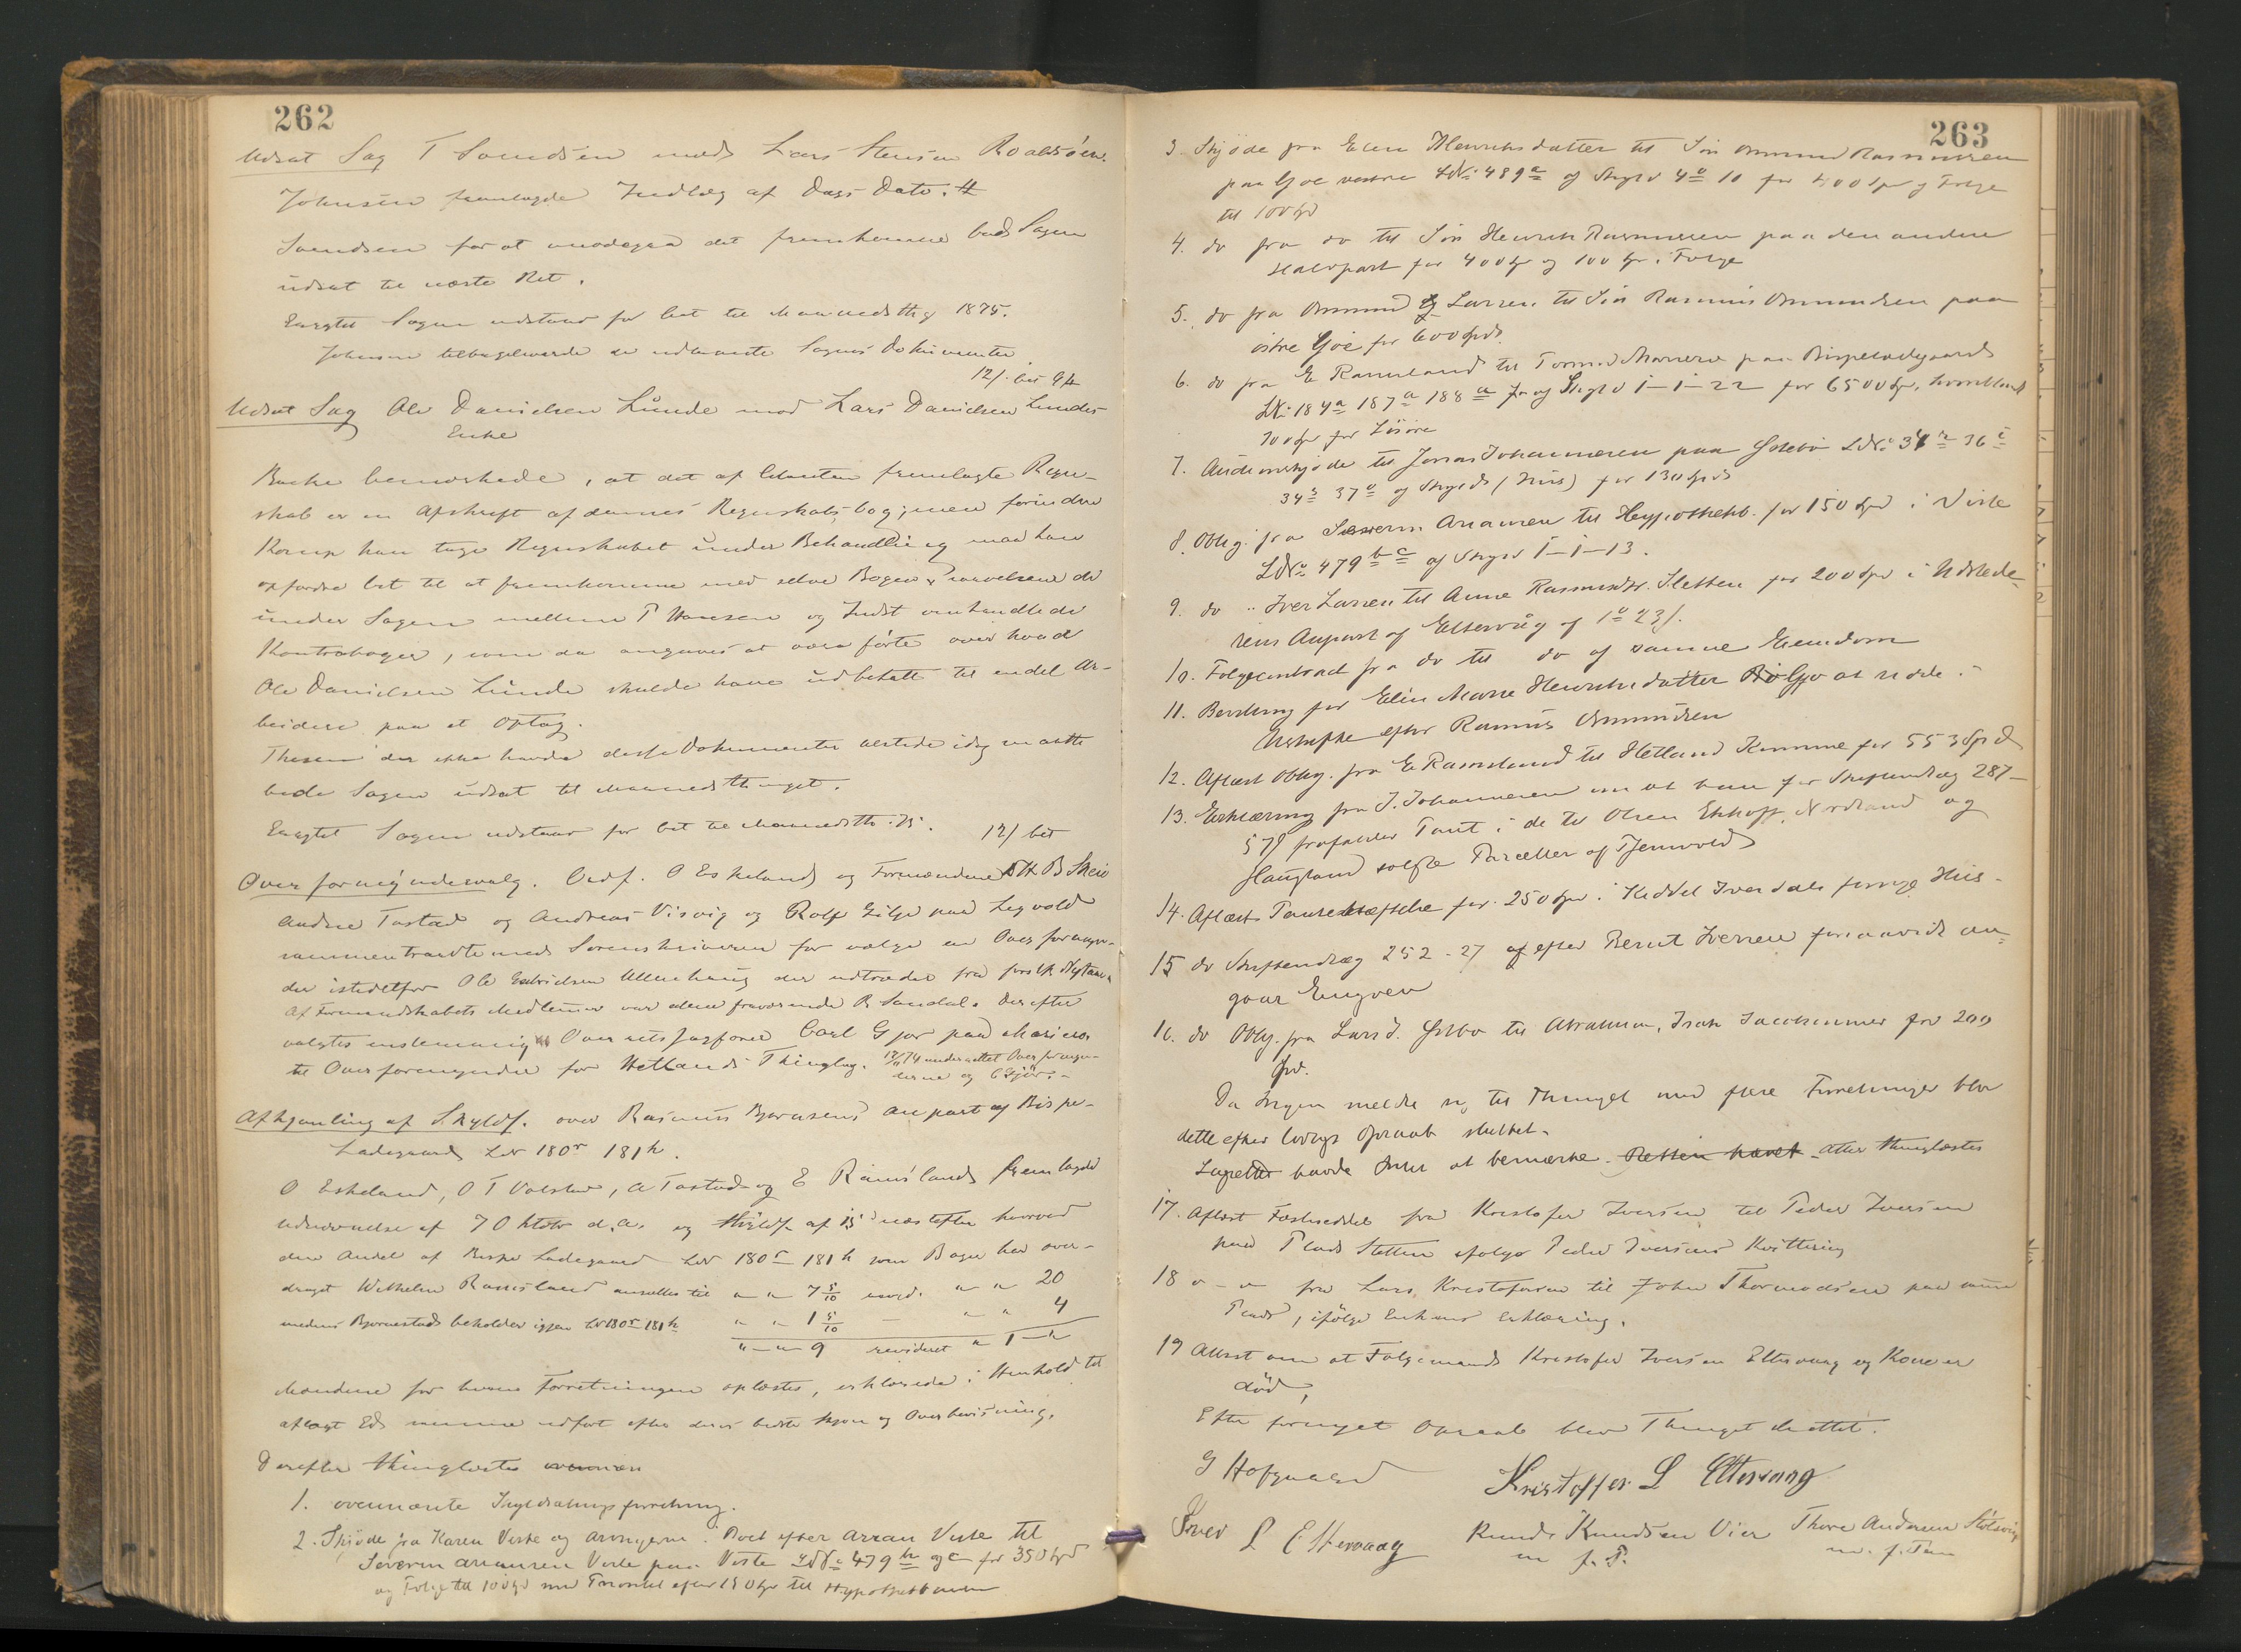 262
Udsat Sag T Svendsen mod Lars Stensen Roaldsöen.
Johnsen fremlagde Indlæg af Dags Dato. #
Svendsen for at imødegaa det fremkomne bad Sagen
udsat til næste Ret.
Eragtet Sagen udstaar for Ret til Maanedsthg 1875.
Johnsen tilbageleverde de udlaante Sagens Dokumenter
12/ bet
Udsat Sag Ole Danielsen Lunde mod Lars Danielsen Lundes
Enke
Bache bemærkede, at det af Citanten fremlagte Regn-
skab er en Afskrift af dennes Regnskabsbog; men forinden
han tage Regnskabet under Behandling maa han
opfordre Cit til at fremkomme med selve Bogen
under Sagen mellem P Hansen og Indst omhandlede
Kontrabøger, som da angaves at være førte over hvad
Ole Danielsen Lunde skulde have udbetalt til endel Ar-
beidere paa et Optog.
Thesen der ikke havde disse Dokumenter tilstede idag maatte
bede Sagen udsat til Maanedsthinget.
Eragtet Sagen udstaar for Ret til Maanedsth. 75.
12/ bet
Overformynderevalg. Ordf. O Eskeland og Formændene B Skeie
Andreas Tastad og Andreas Visvig og Rolf Gilje paa Legvold
sammentraadte med Sorenskriveren for vælge en Overformyn-
der istedetfor Ole Gabrielsen Ullenhaug der udtræder fra først Nytaar
af Formandskabets Medlemmer var alene fraværende R Sandal. Derefter
valgtes enstemmig Overretssagfører Carl Gjør paa Mariero
til Overformynder for Hetlands Thinglag. 12/11 74 underrettet Overformyn-
derne og CGjör.-
Afhjemling af Skyldf. over Rasmus Bjørnsens anpart af Bispe-
Ladegaard LN 180r 181h.
O Eskeland, O T Volstad, A Tastad og E Ramslands fremlagde
Udnævnelse af 7 Oktob d.A. og Skyldf. af 15 næstefter hvorved
den Andel af Bispe Ladegaard LN 180r 181h som Boger har over-
draget Wilhelm Ramsland ansattes til " " 7 5/10 revid. " " 20
medens Bjørnestad beholder igjen LN 180r 181h " " 1 5/10 - " " 4
" — " 9 revideret " 1 — "
Mændene for hvem Forretningen oplæstes, erklærede i Henhold til
aflagt Ed samme udført efter deres bedste Skjøn og Overbevisning.
Derefter thinglæstes
1. ovennævnte Skyldsætningsforretning.
2. Skjøde fra Karen Viste og Arvingerne i Boet efter Arran Viste til
Severin Anansen Viste paa Viste LNo 479 b og c for 350 Spd
og Folge til 100 Spd med Prioritet efter 150 Spd til Hypothekbanken
263
3. Skjøde fra Elen Henriksdatter til Søn Ommund Rasmussen
paa Gjoe vestre LNo 489a og Skyld 4o 10 for 400 Spd og Folge
til 100 Spd
4. do fra do til Søn Henrik Rasmussen paa den anden
Halvpart for 400 Spd og 100 Spd i Folge
5. do fra Ommund Larsen til Søn Rasmus Ommundsen paa
østre Gjoe for 600 Spd.
6. do fra E Ramsland til Tormod paa Bispeladegaard
LNo 184a 187a 188a og Skyld 1-1-22 for 6500 Spd, hvoriblandt
700 Spd for Løsøre
7. Auctionsskjøde til Jonas Johannesen paa LNo 36i
34s 37o og Skyld (Hus) for 130 Spd
8. Oblig. fra Severin Anansen til Hypothekb. for 150 Spd i Viste
LNo 479 b c og Skyld 1-1-13.
9. do " Iver Larsen til Anne Rasmusdtr. Sletten for 200 Spd i Udstede-
rens Anpart af Eltervåg af 1o 23/.
10. Folgecontract fra do til do af samme Eiendom
11. Bevilling for Elen Marie Henriksdatter Gjo at sidde i
Uskiftet efter Rasmus Ommundsen
12. Aflæst Oblig. fra E Ramsland til Hetland Komune for 553 Spd
13. Erklæring fra J. Johannesen om at han for Skifteudlæg 287-
57/ frafalder Pant i de til Olsen Ekhoff, Nordland og
Haugland solgte Parceller af Tjensvold
14. Aflæst Panteheftelse for 250 Spd i Keddel Iversdals forrige Hus.
15 do Skifteudlæg 252-27 efter Berent Iversen forsaavidt an-
gaar Engveen
16. do Oblig. fra Lars J. til Abraham, Isak Jacobsenner for 200
Spd.
Da Ingen meldte sig til Thinget med flere Forretninger blev
dette efter lovligt Opraab sluttet.
Lagretten havde Intet at bemærke. Retten hævet. Atter thinglæstes
17. Aflæst Fæsteseddel fra Kristofer Iversen til Peder Iversen
paa Plads Sletten ifølge Peder Iversens Kvittering
18 " - " fra Lars Kristofersen til John Thormodsen paa samme
Plads, ifølge Enkens Erklæring.
19 Attest om at Folgemand Kristofer Iversen Eltervaag og Kone er
död,
Efter fornyet Opraab blev Thinget sluttet.
G Hofgaard
Kristoffer L Eltervaag
Iver L Eltervaag
Knud Knudsen Vier
m. f. P.
Thore Andersen Stölsvig
m. f. Pen